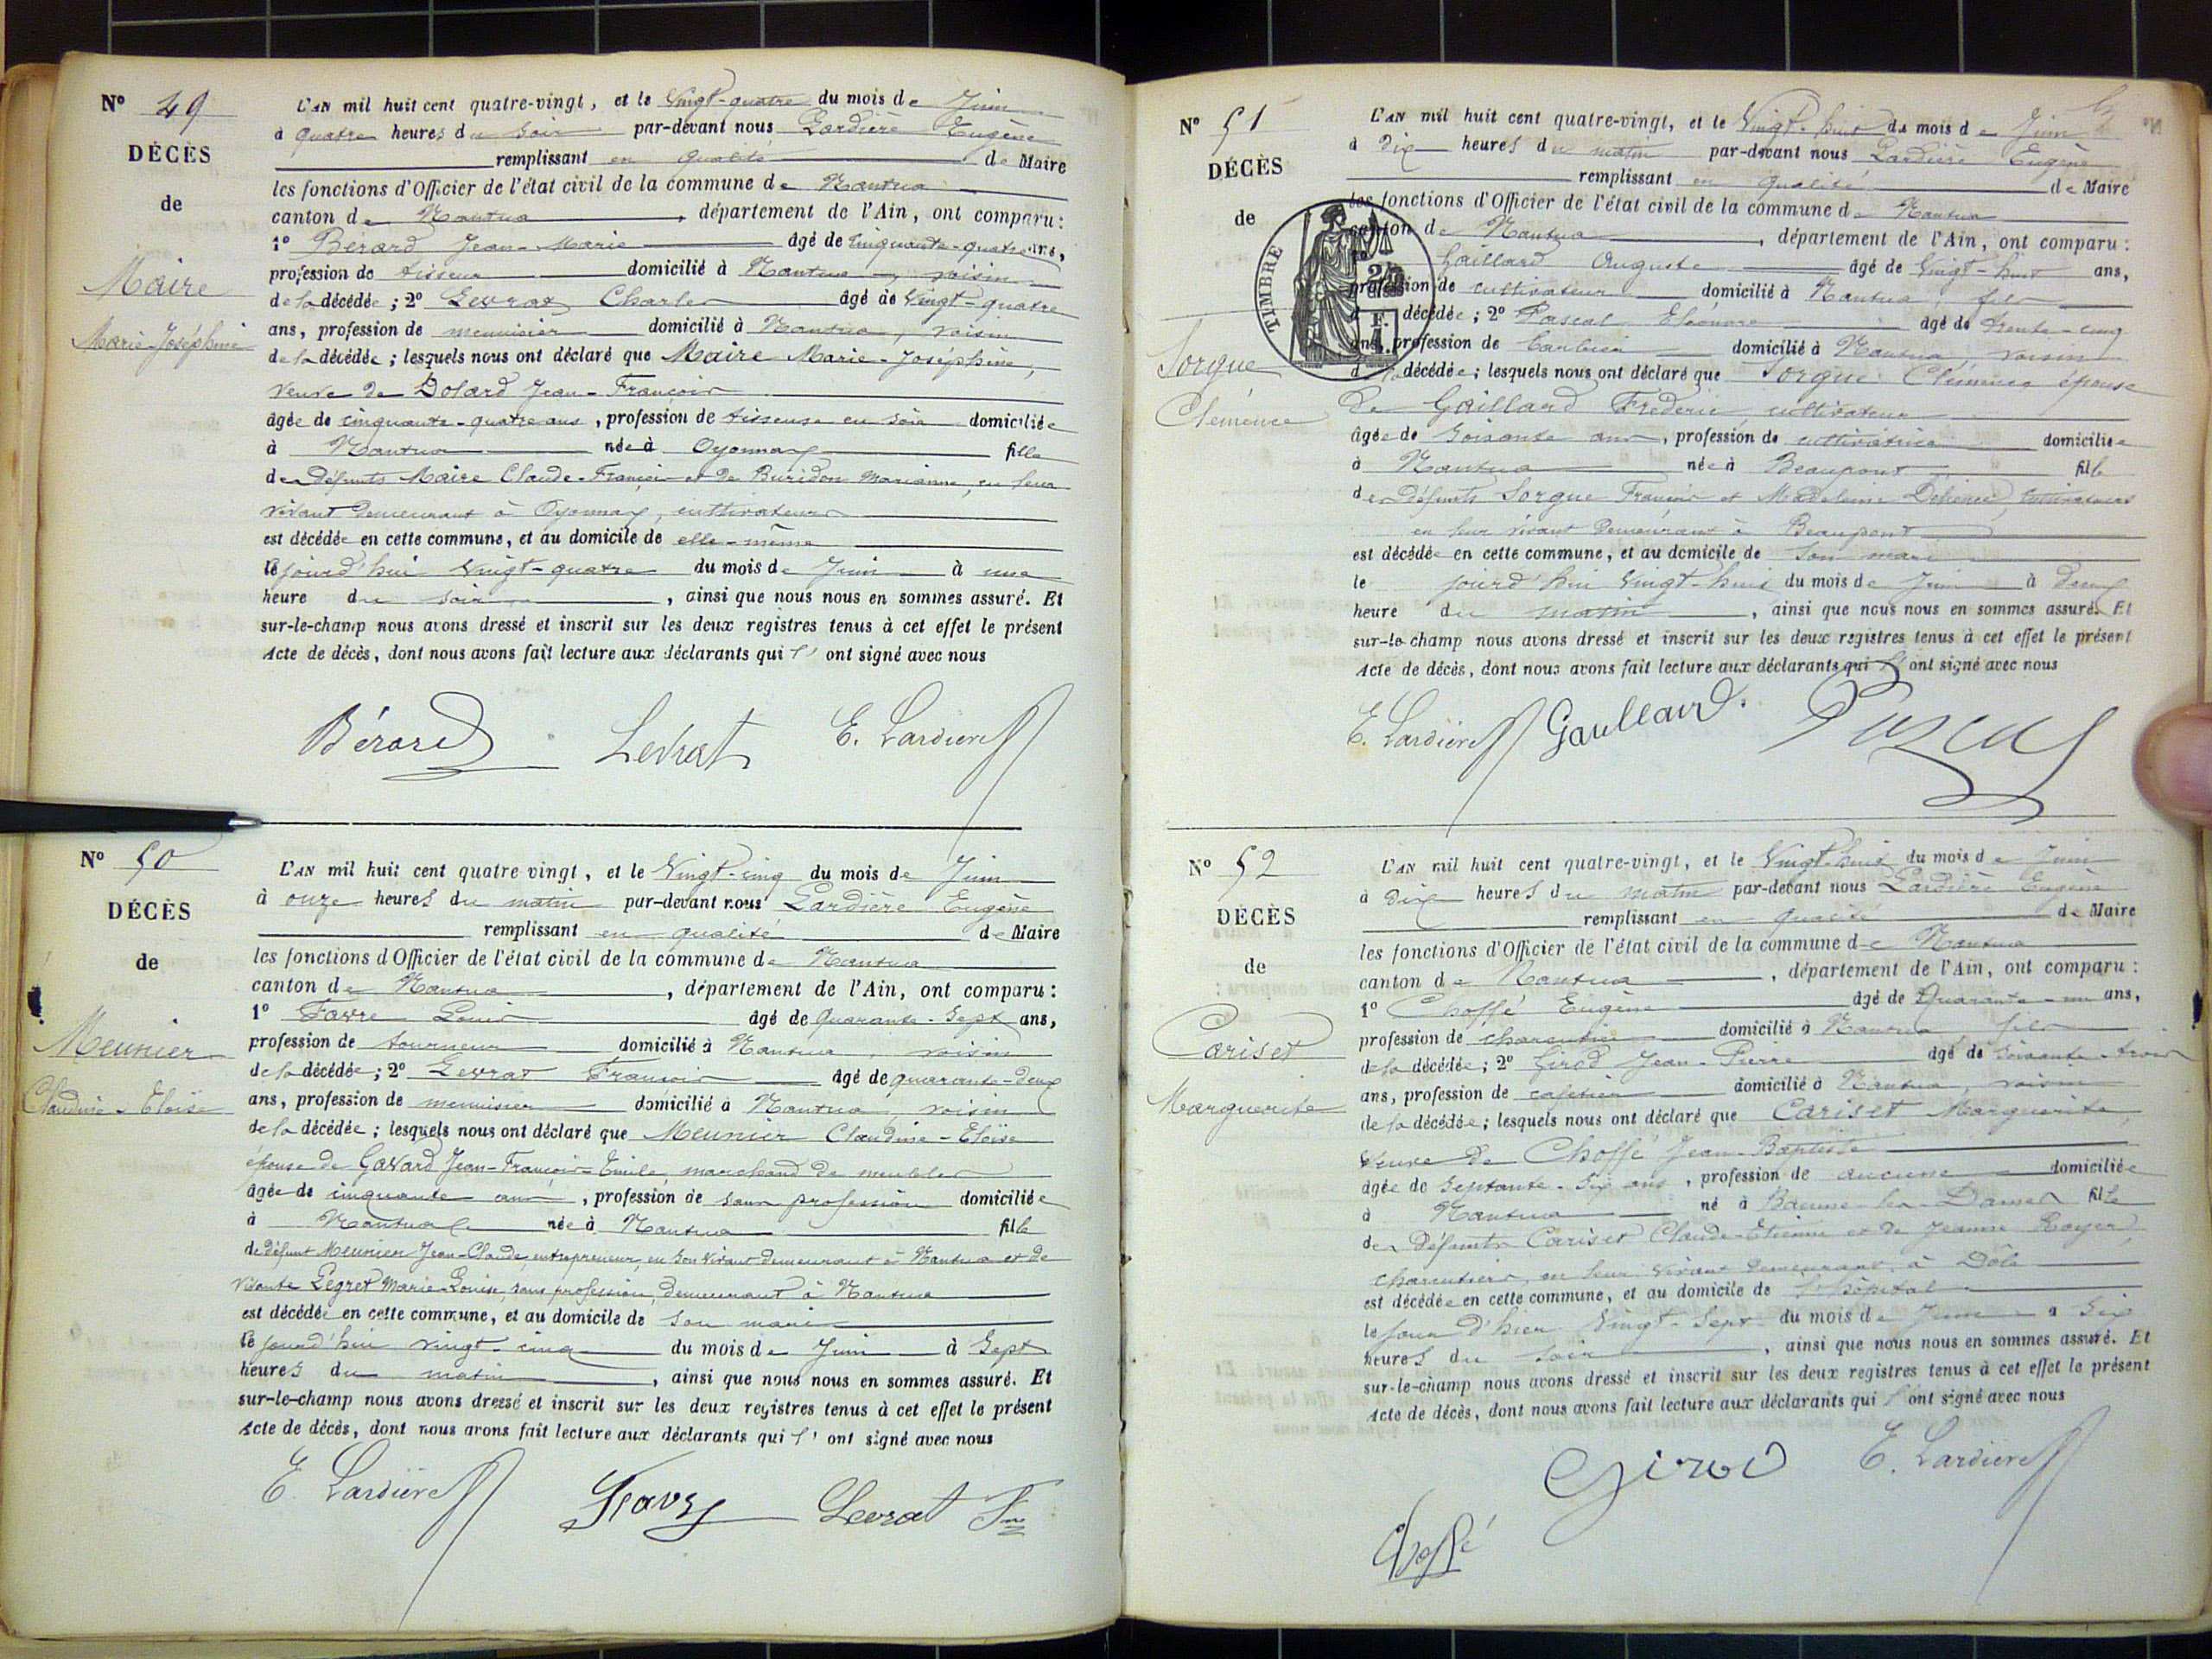 N° 49
DÉCÈS
de
Maire
Marie-Joséphine
L'AN mil huit cent quatre-vingt, et le Vingt-quatre du mois de Juin
à quatre heures du soir par-devant nous Lardière Eugène
remplissant en qualité de Maire
les fonctions d'Officier de l'état civil de la commune de Nantua
canton de Nantua, département de l'Ain, ont comparu:
1° Berard Jean-Marie âgé de Cinquante-quatre ans,
profession de tisseur domicilié à Nantua, voisin
de la décédée; 2° Levrat Charles âgé de Vingt-quatre
ans, profession de menuisier domicilié à Nantua, voisin
de la décédée; lesquels nous ont déclaré que Maire Marie-Joséphine,
Veuve de Dolard Jean-François
âgée de cinquante-quatre ans, profession de tisseuse en soie domiciliée
à Nantua née à Oyonnax fille
des Défunts Maire Claude-François et de Buridon Marianne, en leur
vivant demeurant à Oyonnax, cultivateurs
est décédée en cette commune, et au domicile de elle-même
le jourd'hui Vingt-quatre du mois de Juin à une
heure du soir, ainsi que nous nous en sommes assuré. Et
sur-le-champ nous avons dressé et inscrit sur les deux registres tenus à cet effet le présent
Acte de décès, dont nous avons fait lecture aux déclarants qui l' ont signé avec nous
Bérard Levrat E. Lardière
N° 50
DÉCÈS
de
Meunier
Claudine-Eloïse
L'AN mil huit cent quatre vingt, et le Vingt-cinq du mois de Juin
à onze heures du matin par-devant nous Lardière Eugène
remplissant en qualité de Maire
les fonctions d'Officier de l'état civil de la commune de Nantua
canton de Nantua, département de l'Ain, ont comparu:
1° Favre Louis âgé de Quarante-Sept ans,
profession de tourneur domicilié à Nantua, voisin
de la décédée; 2° Levrat François âgé de quarante-deux
ans, profession de menuisier domicilié à Nantua, voisin
de la décédée; lesquels nous ont déclaré que Meunier Claudine-Eloïse
épouse de Gavard Jean-François-Emile, marchand de meubles
âgée de cinquante ans, profession de sans profession domiciliée
à Nantua née à Nantua fille
de défunt Meunier Jean-Claude, entrepreneur, en son vivant demeurant à Nantua et de
vivante Legret Marie-Louise, sans profession, demeurant à Nantua
est décédée en cette commune, et au domicile de son mari
le jourd'hui vingt-cinq du mois de Juin à Sept
heures du matin, ainsi que nous nous en sommes assuré. Et
sur-le-champ nous avons dressé et inscrit sur les deux registres tenus à cet effet le présent
Acte de décès, dont nous avons fait lecture aux déclarants qui l' ont signé avec nous
E. Lardière Favre Levrat Fois
N° 51
DÉCÈS
de
Sorgue
Clémence
TIMBRE
L'AN mil huit cent quatre-vingt, et le Vingt-huit du mois de Juin
à Dix heures du matin par-devant nous Lardière Eugène
remplissant en qualité de Maire
les fonctions d'Officier de l'état civil de la commune de Nantua
canton de Nantua, département de l'Ain, ont comparu:
Gaillard Auguste âgé de Vingt-huit ans,
profession de cultivateur domicilié à Nantua, fils
décédée; 2° Pascal Eléonore âgé de trente-cinq
ans, profession de domicilié à Nantua, voisin
de la décédée; lesquels nous ont déclaré que Sorgue Clémence épouse
De Gaillard Frédéric, cultivateur
âgée de Soixante ans, profession de cultivatrice domiciliée
à Nantua née à Beaupont fille
des Défunts Sorgue François et Madeleine cultivateurs
en leur vivant Demeurant à Beaupont
est décédée en cette commune, et au domicile de Son mari
le jourd'hui Vingt-huit du mois de Juin à Deux
heure du matin, ainsi que nous nous en sommes assuré. Et
sur-le-champ nous avons dressé et inscrit sur les deux registres tenus à cet effet le présent
Acte de décès, dont nous avons fait lecture aux déclarants qui l' ont signé avec nous
E. Lardière Gaillard. Pascal
N° 52
DÉCÈS
de
Cariset
Marguerite
L'AN mil huit cent quatre-vingt, et le Vingt-huit du mois de Juin
à Dix heures du matin par-devant nous Lardière Eugène
remplissant en qualité de Maire
les fonctions d'Officier de l'état civil de la commune de Nantua
canton de Nantua, département de l'Ain, ont comparu:
1° Choffé Eugène âgé de Quarante-un ans,
profession de charcutier domicilié à Nantua, fils
de la décédée; 2° Girod Jean-Pierre âgé de soixante-trois
ans, profession de cafetier domicilié à Nantua, voisin
de la décédée; lesquels nous ont déclaré que Cariset Marguerite,
Veuve de Choffé Jean-Baptiste
âgée de Septante-Six ans, profession de aucune domiciliée
à Nantua né à Baume-les-Dames fille
des Défunts Cariset Claude-Etienne et de Jeanne Royer,
charcutiers, en leur vivant demeurant à Dôle
est décédée en cette commune, et au domicile de l'hôpital
le jour d'hier Vingt-Sept du mois de Juin à Six
heures du soir, ainsi que nous nous en sommes assuré. Et
sur-le-champ nous avons dressé et inscrit sur les deux registres tenus à cet effet le présent
Acte de décès, dont nous avons fait lecture aux déclarants qui l' ont signé avec nous
Girod E. Lardière
Choffé